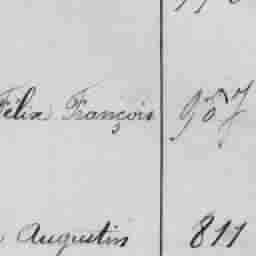 Félix François 957
Augustin 811